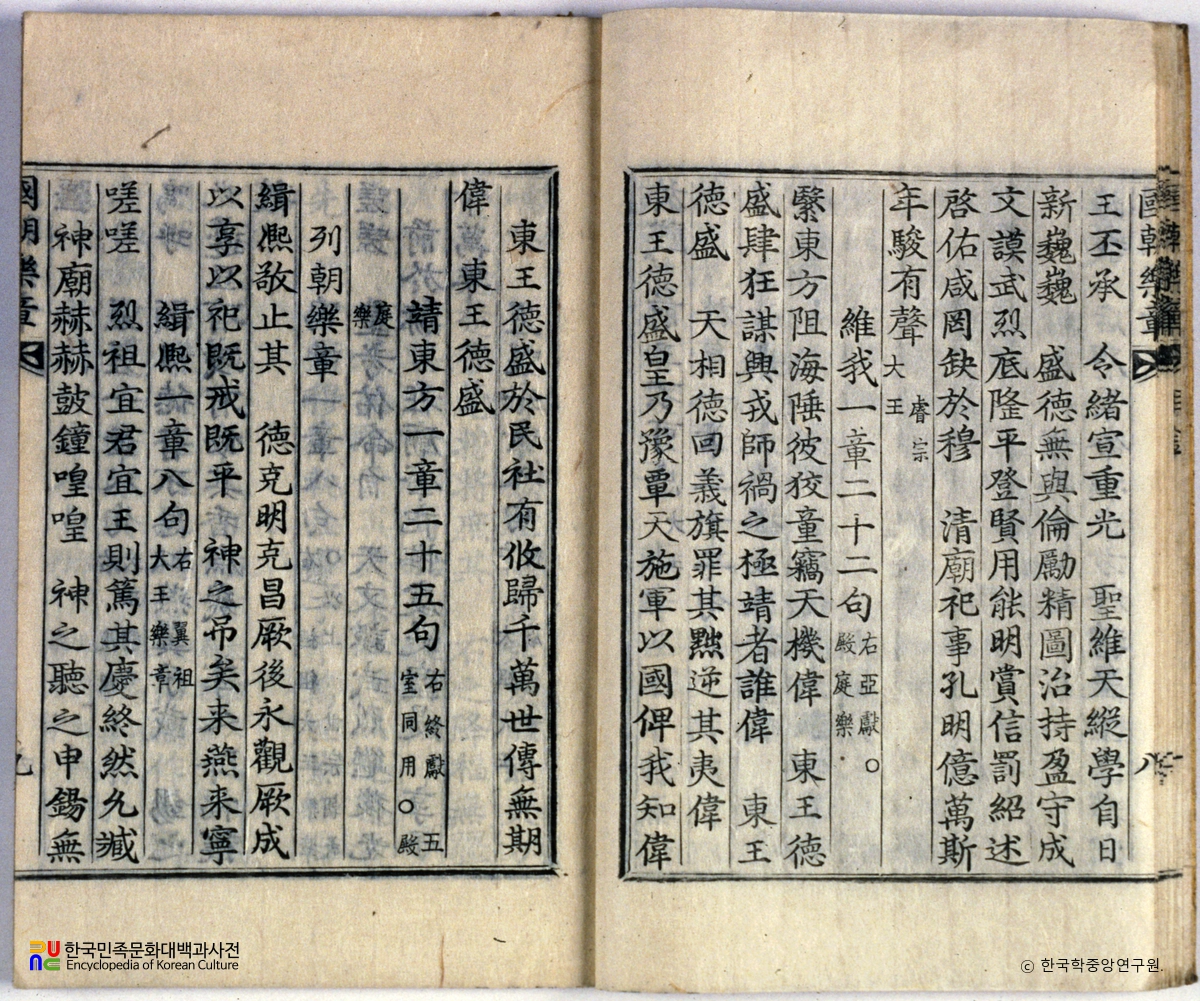 國朝樂章
八
王丕承　令緒宣重光　聖維天縱學自日
新巍巍　盛德無與倫勵精圖治持盈守成
文謨武烈底隆平登賢用能明賞信罰紹述
啓佑咸罔缺於穆　清廟祀事孔明億萬斯
年駿有聲 睿宗大王
維我一章二十二句 右亞獻○殿庭樂
繄東方阻海陲彼狡童竊天機偉　東王德
盛肆狂謀興戎師禍之極靖者誰偉　東王
德盛　天相德回義旗罪其黜逆其夷偉
東王德盛皇乃豫覃天施軍以國俾我知偉
東王德盛於民社有攸歸千萬世傳無期
偉東王德盛
靖東方一章二十五句 右終獻五室同用○殿庭樂
列朝樂章
緝熙敬止其　德克明克昌厥後永觀厥成
以享以祀既戒既平　神之吊矣来燕来寧
緝熙一章八句 右翼祖大王樂章
嗟嗟　烈祖宜君宜王則篤其慶終然允臧
神廟赫赫鼓鐘喤喤　神之聽之申錫無
國朝樂章
九
한국민족문화대백과사전
Encyclopedia of Korean Culture
© 한국학중앙연구원.